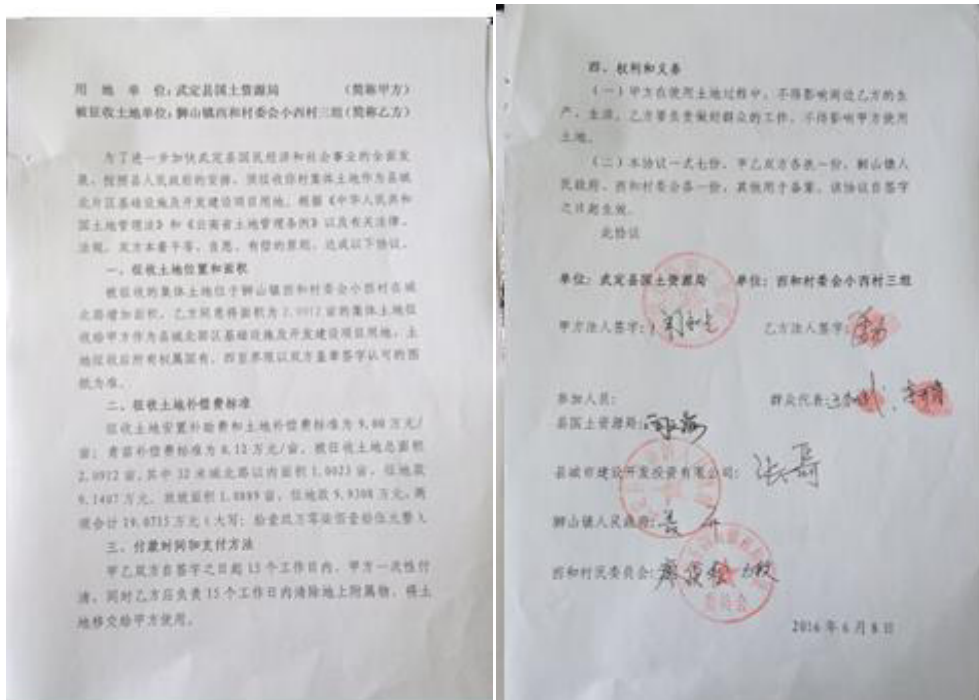 用地单位：武定县国土资源局（简称甲方）
被征收土地单位：狮山镇西和村委会小西村三组（简称乙方）
为了进一步加快武定县国民经济和社会事业的全面发
展，按照县人民政府的安排，须征收你村集体土地作为县城
北片区基础设施及开发建设项目用地。根据《中华人民共和
国土地管理法》和《云南省土地管理条例》以及有关法律、
法规，双方本着平等、自愿、有偿的原则，达成以下协议。
一、征收土地位置和面积
被征收的集体土地位于狮山镇西和村委会小西村在城
北路增加面积，乙方同意将面积为2.0912亩的集体土地征
收给甲方作为县城北部区基础设施及开发建设项目用地，土
地征收后所有权属国有，四至界限以双方盖章签字认可的图
纸为准。
二、征收土地补偿费标准
征收土地安置补助费和土地补偿费标准为9.00万元/
亩；青苗补偿费标准为0.12万元/亩，被征收土地总面积
2.0912亩，其中32米城北路以内面积1.0023亩，征地款
9.1407万元，面积1.0889亩，征地款9.9308万元，两
项合计19.0715万元（大写：拾壹玖万零柒佰壹拾伍元整）
三、付款时间和支付方法
甲乙双方自签字之日起15个工作日内，甲方一次性付
清，同时乙方应负责15个工作日内清除地上附属物，将土
地移交给甲方使用。
四、权利和义务
（一）甲方在使用土地过程中，不得影响周边乙方的生
产、生活，乙方要负责做好群众的工作，不得影响甲方使用
土地。
（二）本协议一式七份，甲乙双方各执一份，狮山镇人
民政府、西和村委会各一份，其他用于备案，该协议自签字
之日起生效。
此协议
单位：武定县国土资源局 单位：西和村委会小西村三组
甲方法人签字： 乙方法人签字：
参加人员： 群众代表：
县国土资源局：
县城市建设开发投资有限公司：
狮山镇人民政府：
西和村民委员会：
委员会
2016年6月8日